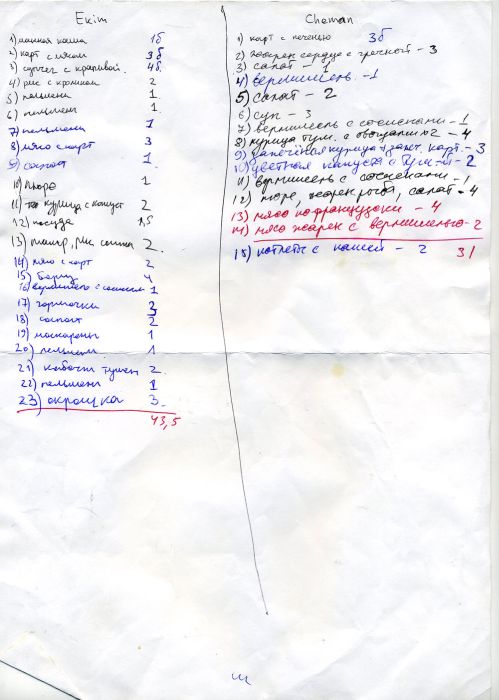 Ekim
1) манная каша 1б
2) карт с мясом 3б
3) супчег с крапивой. 4б.
4) рис с кроликом 2
5) пельмени 1
6) пельмени 1
7) пельмени 1
8) мясо с карт 3
9) 1
10) пюре 1
11) курица с капуст 2
12) посуда 1,5
13) рис 2
14) мясо с карт 2
15) борщ 4
16) вермишель с сосиском 1
17) горшочки
18) 2
19) макароны 1
20) пельмени 1
21) кабачки тушен 2
22) пельмени 1
23) окрошка 3
43,5
Cheman
1) карт с печенью 3б
2) сердце с гречкой - 3
3) салат - 1
4) вермишель - 1
5) салат - 2
6) суп - 3
7) вермишель с сосисками - 1
8) курица туш. с овощами - 4
9) запечёная курица карт. - 3
10) цветная капуста с - 2
11) вермишель с сосисками - 1
12) пюре, жарен рыба, салат - 4
13) мясо по французски - 4
14) мясо жарен с вермишелью - 2
15) котлеты с кашей - 2
31